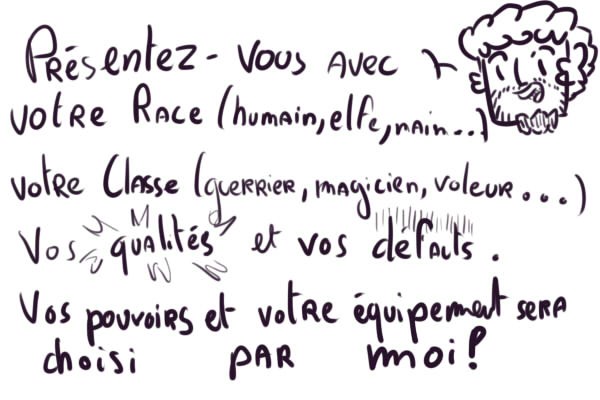 Présentez-vous avec
votre Race (humain, elfe, nain...)
votre Classe (guerrier, magicien, voleur...)
Vos qualités et vos défauts.
Vos pouvoirs et votre équipement sera
choisi par moi!